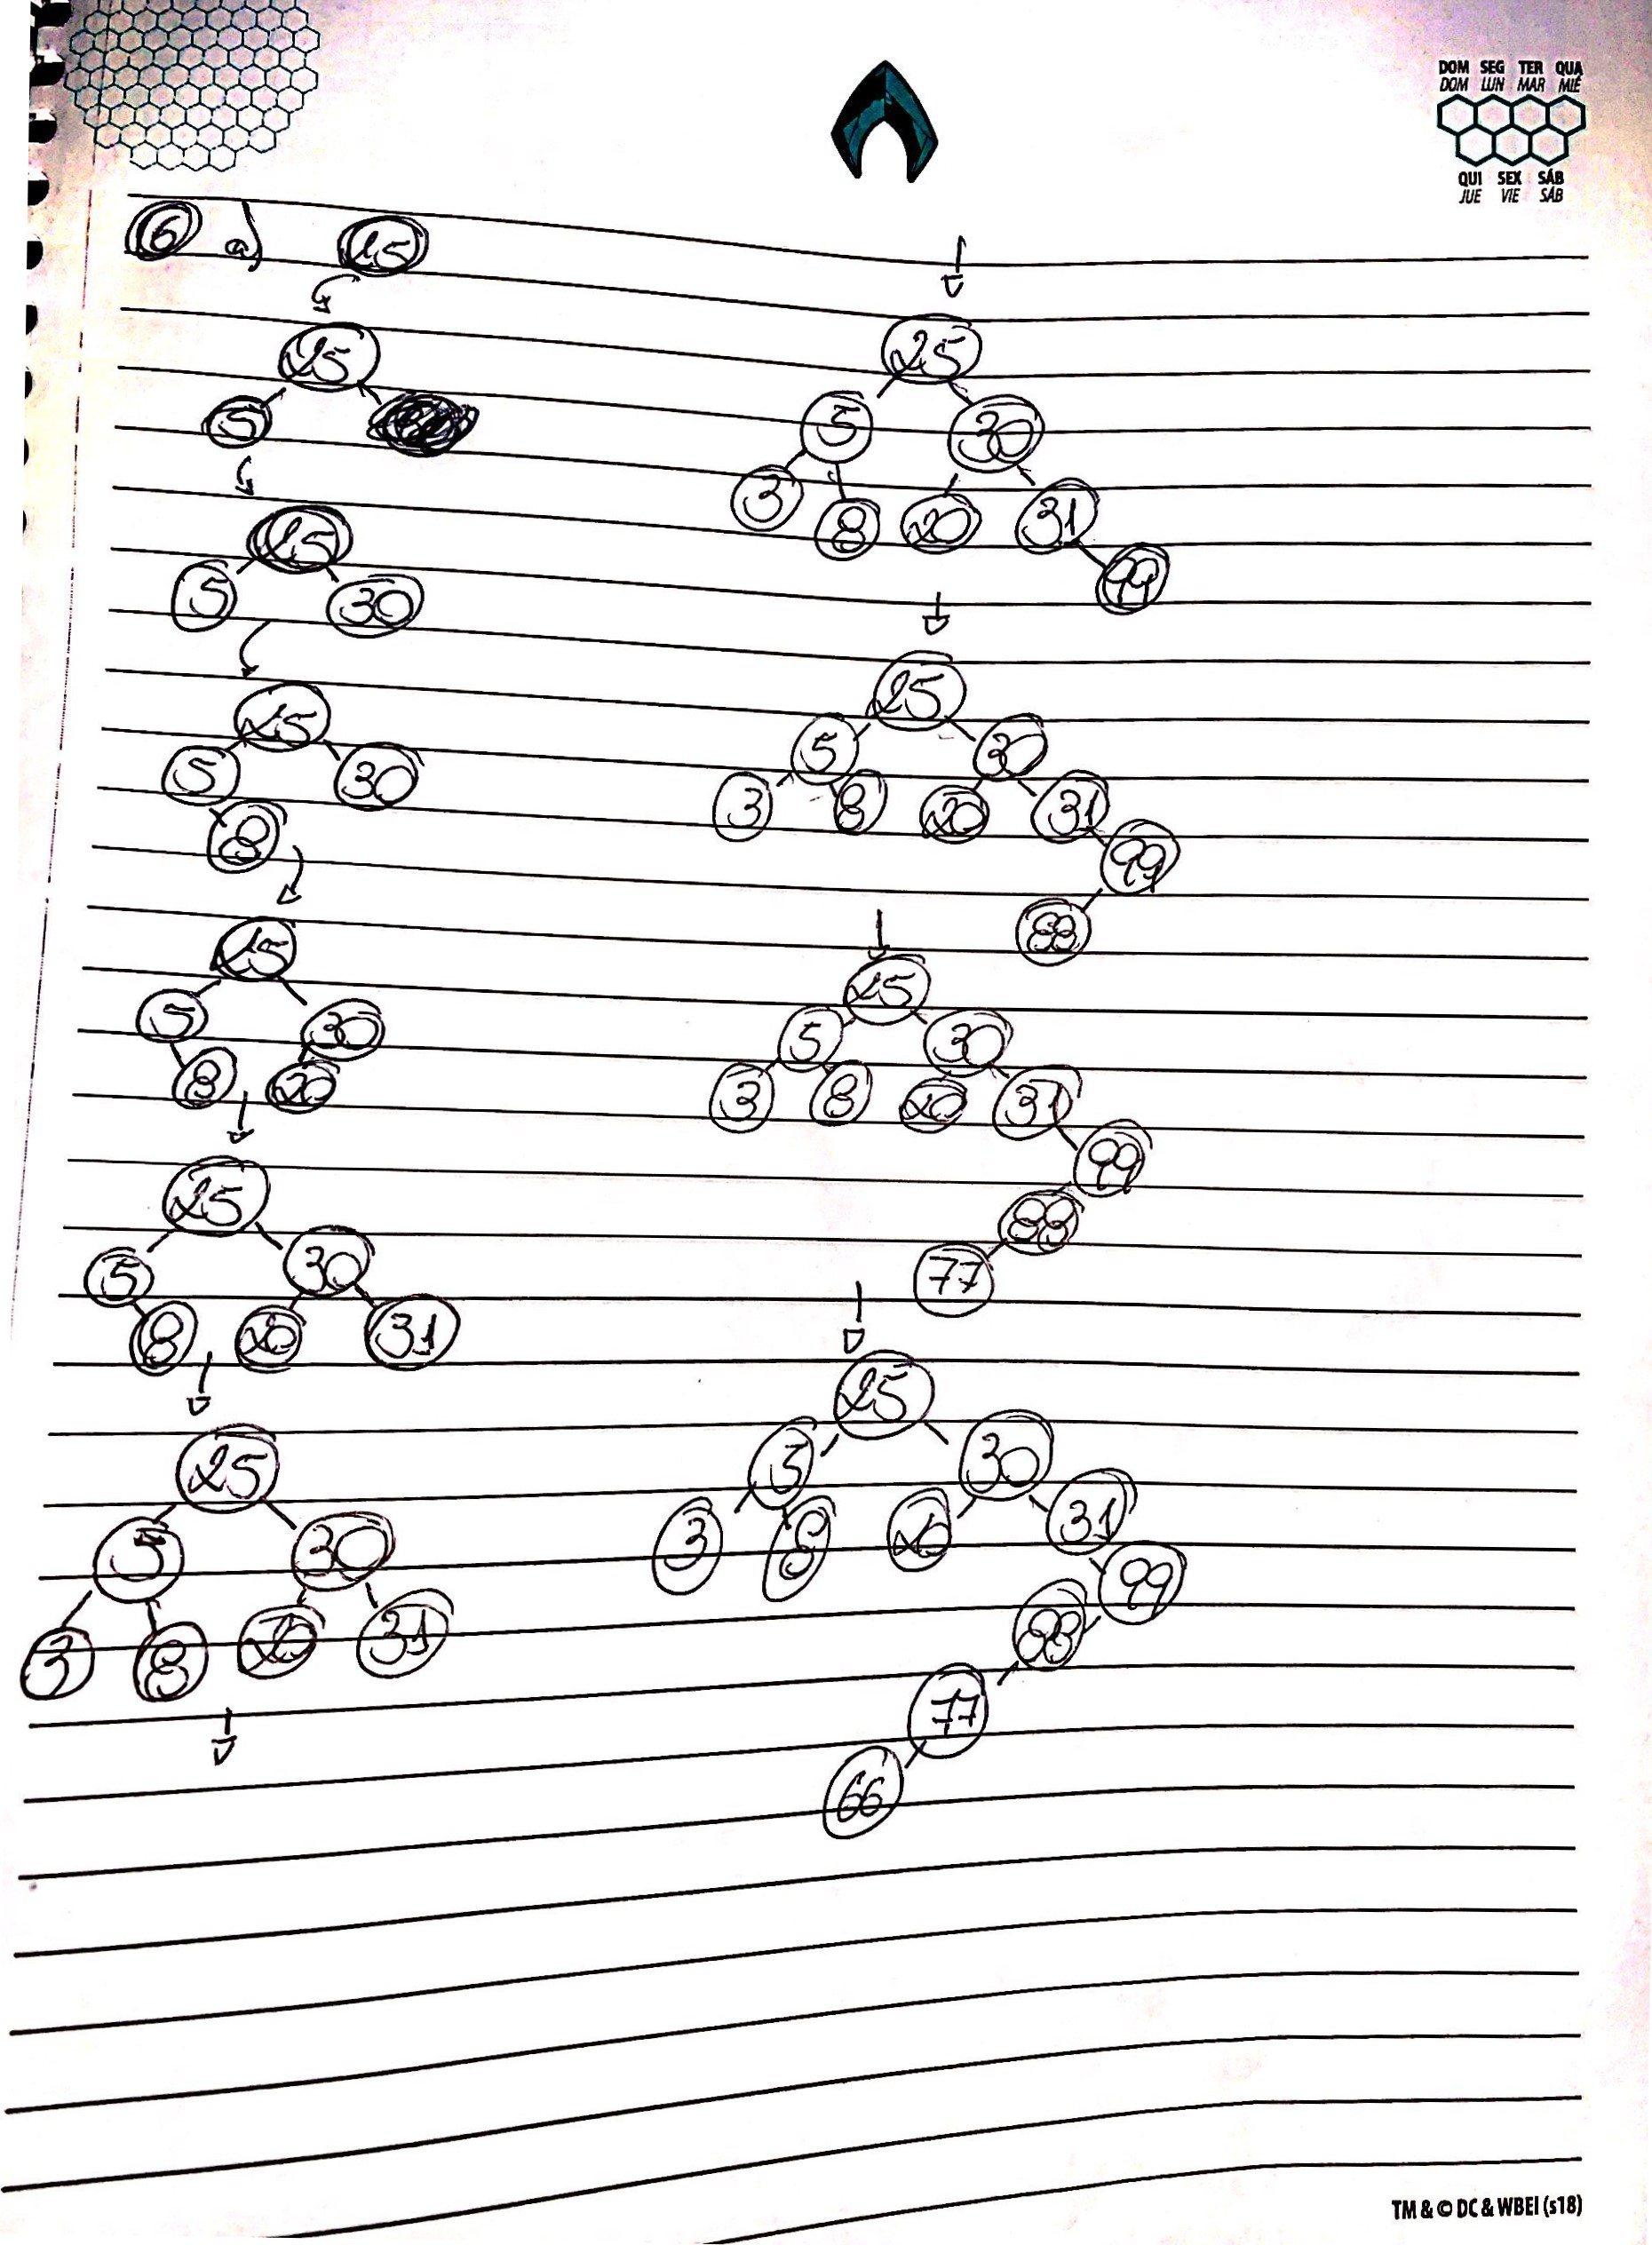 DOM SEG TER QUA
DOM LUN MAR MIÉ
QUI SEX SÁB
JUE VIE SÁB
6 a) 25
25
5
25
5 30
25
5 30
8
25
5 30
8 20
25
5 30
8 20 31
25
5 30
3 8 20 31
25
5 30
3 8 20 31
99
25
5 30
3 8 20 31
99
88
25
5 30
3 8 20 31
99
88
77
25
5 30
3 8 20 31
99
88
77
66
TM & © DC & WBEI (s18)